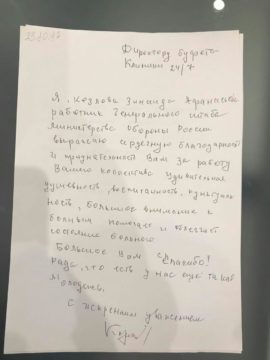 Директору бюджета
Клиники 24/7
Я, Козлова Зинаида Афанасьевна
работник Генерального штаба
министерства Обороны России
выражаю сердечную благодарность
и признательность Вам за работу
Вашего коллектива удивительная
душевность, воспитанность, пунктуаль
ность, большое внимание к
больным помогает и облегчает
состояние больного
Большое Вам Спасибо!
Рада, что есть у нас ещё такая
молодежь.
С искренним уважением